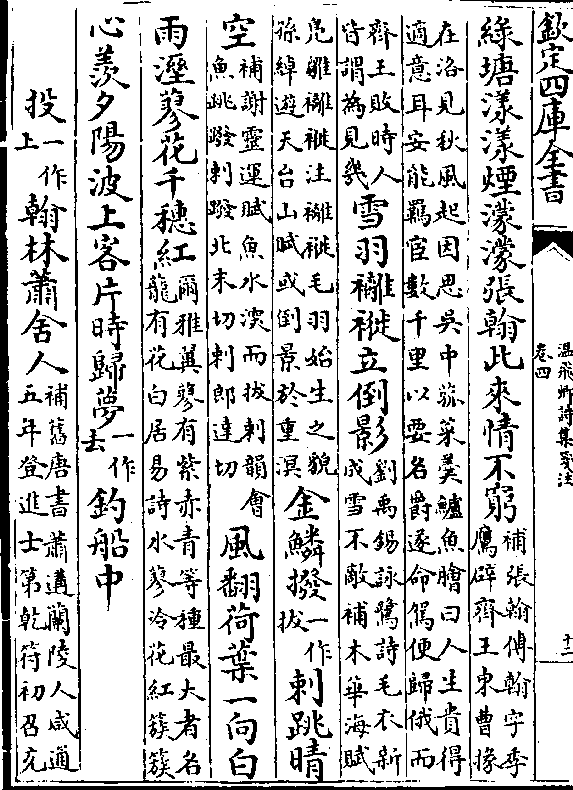 欽定四庫全書
温飛卿詩集箋注
卷四
綠塘漾漾煙濛濛張翰此來情不窮
補張翰傳翰字季
鷹辟齊王東曹掾
在洛見秋風起因思吳中菰菜羹鱸魚膾曰人生貴得
適意耳安能羈宦數千里以要名爵遂命駕便歸俄而
齊王敗時人
皆謂為見幾
雪羽褵褷立倒影
劉禹錫詠鷺詩毛衣新
成雪不敵補木華海賦
鳬雛褵褷注褵褷毛羽始生之貌
孫綽遊天台山賦或倒景於重溟
金鱗撥
一作
拔
剌跳晴
空
補謝靈運賦魚水深而拔剌韻會
魚跳蹳剌蹳北末切剌郎達切
風翻荷葉一向白
雨溼蓼花千穗紅
爾雅翼蓼有紫赤青等種最大者名
龍有花白居易詩水蓼冷花紅簇簇
心羨夕陽波上客片時歸夢
一作
去
釣船中
投
一作
上
翰林蕭舍人
補舊唐書蕭遘蘭陵人咸通
五年登進士第乾符初召充